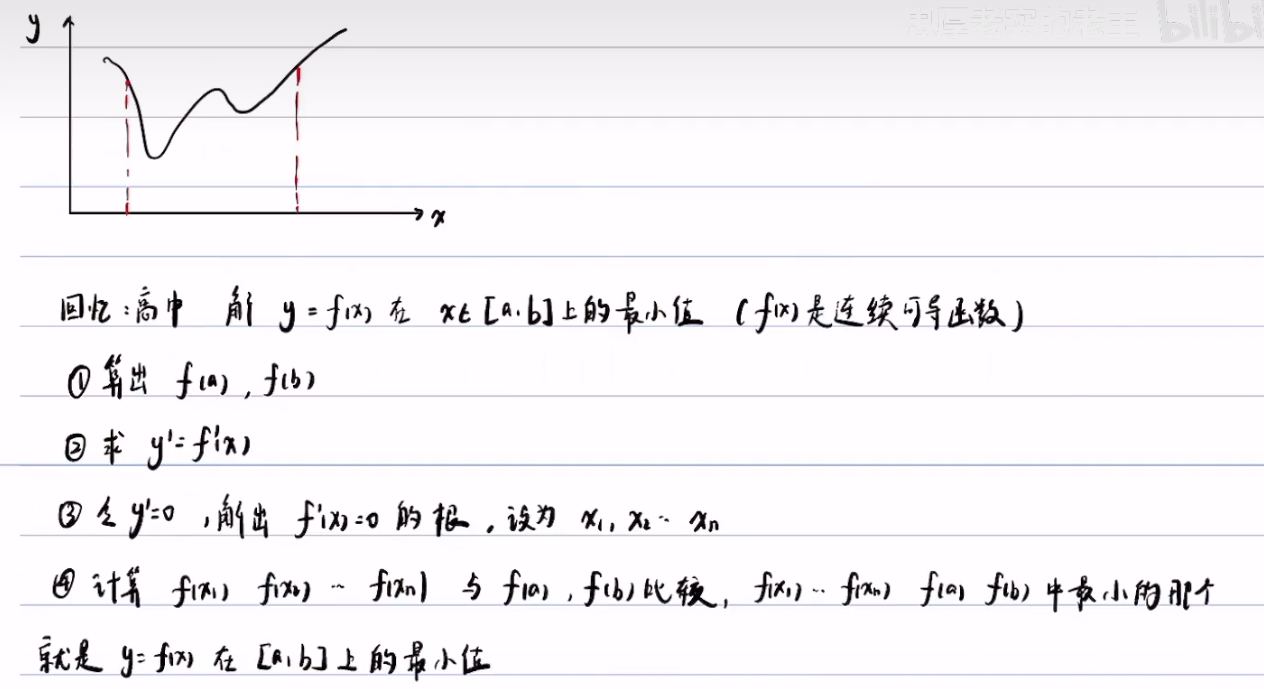 思厚老实的老王 bilibi
y
x
回忆:高中 解 y=f(x) 在 x∈[a,b]上的最小值 (f(x)是连续可导函数)
① 算出 f(a), f(b)
② 求 y'=f'(x)
③ 令 y'=0 ,解出 f'(x)=0 的根 . 设为 x₁, x₂ ‥ xₙ
④ 计算 f(x₁) f(x₂) ‥ f(xₙ) 与 f(a) , f(b) 比较, f(x₁) ‥ f(xₙ) f(a) f(b) 中最小的那个
就是 y=f(x) 在 [a,b] 上的最小值